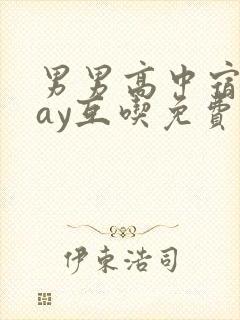 男男高中宿
ay互喫免費
伊東浩司